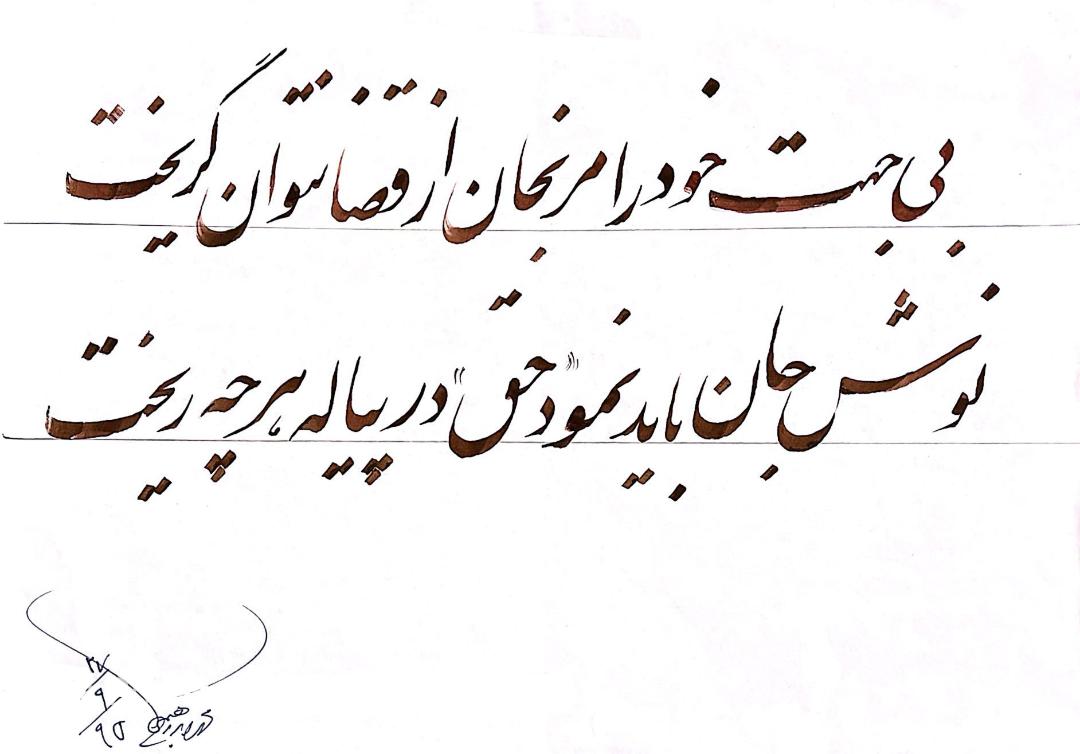 بی جهت خود را مرنجان از قضا نتوان گریخت
نوش جان باید نمود «حق» در پیاله هر چه ریخت
۹۵/۹/۲۷